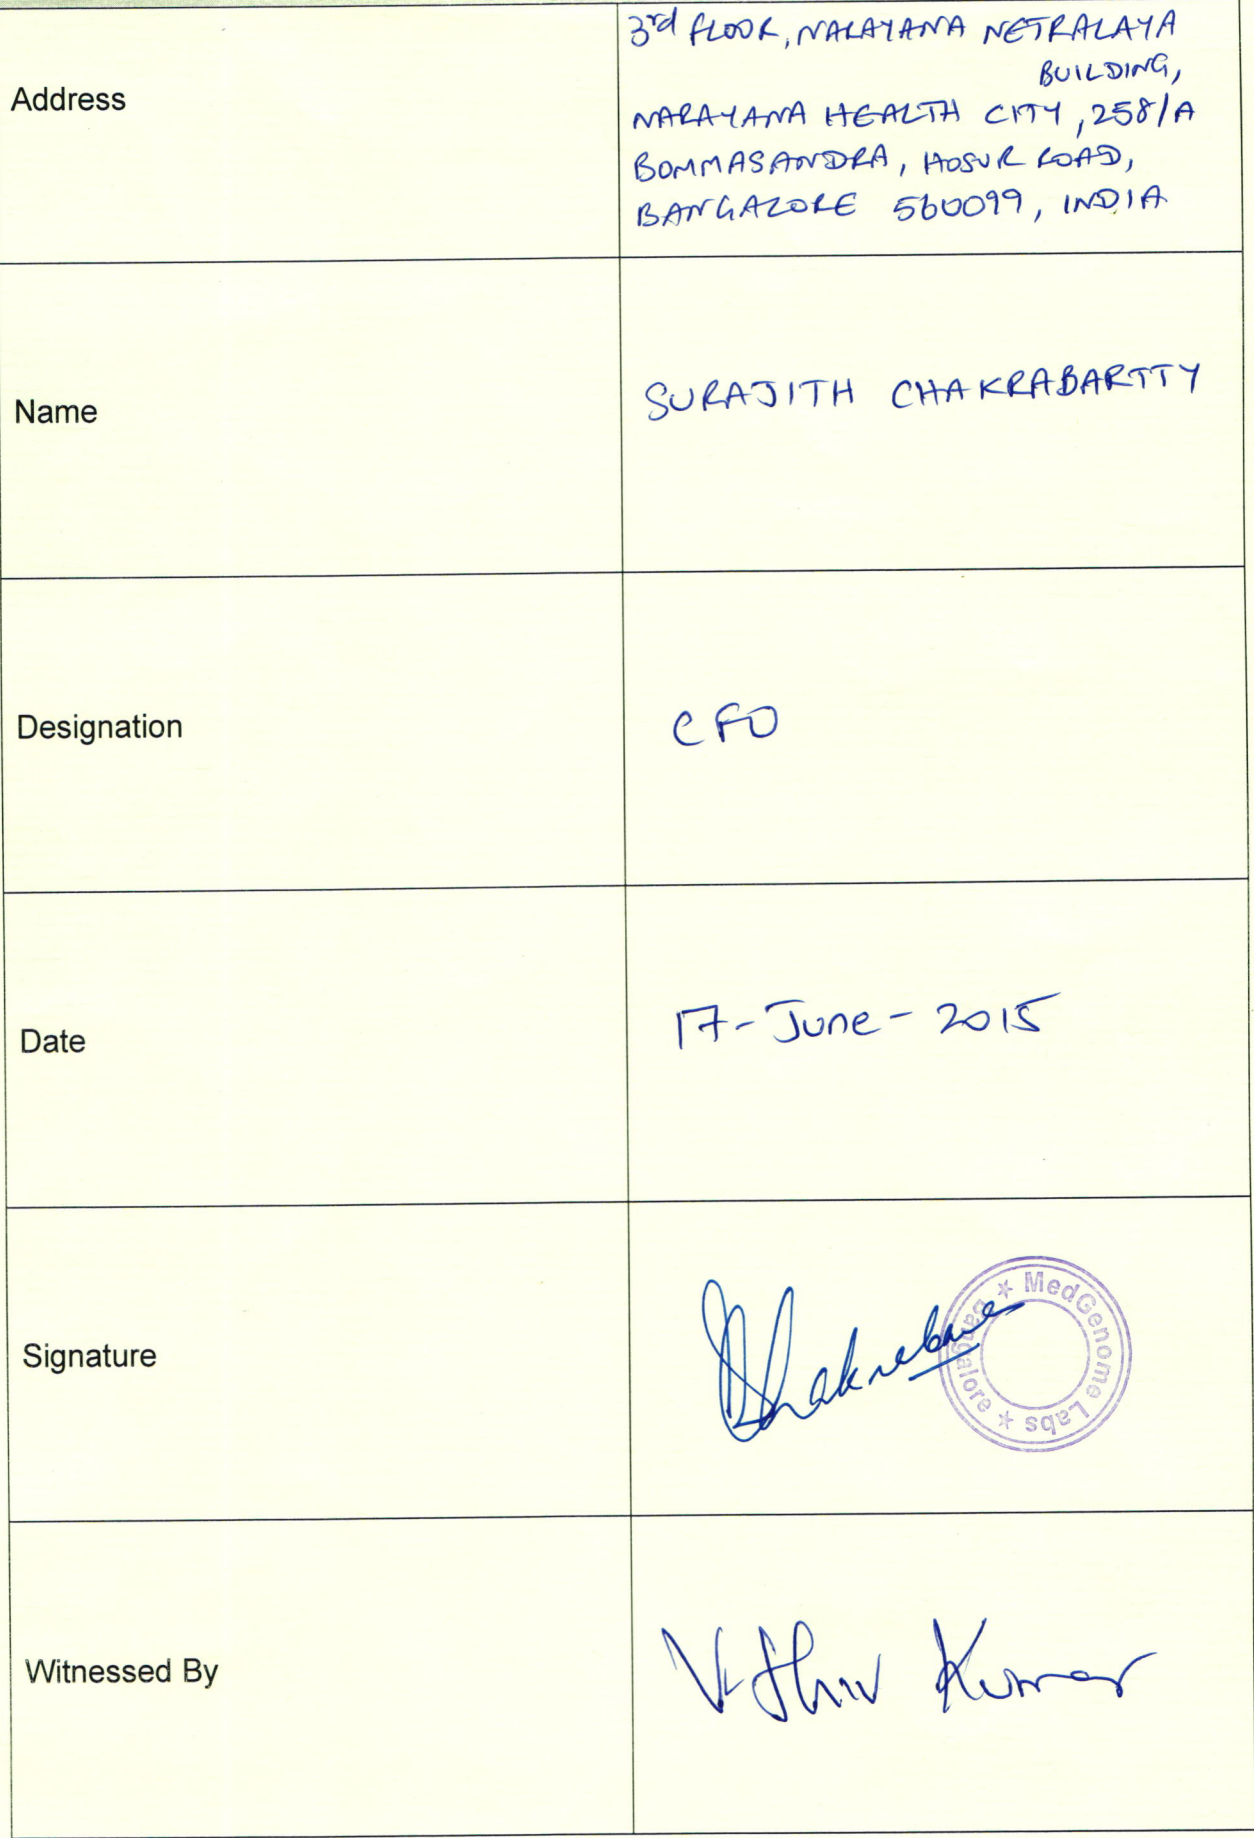 Address
3rd FLOOR, NARAYANA NETRALAYA
BUILDING,
NARAYANA HEALTH CITY, 258/A
BOMMASANDRA, HOSUR ROAD,
BANGALORE 560099, INDIA
Name
SURAJITH CHAKRABARTTY
Designation
CFO
Date
17-June-2015
Signature
* MedGenome Labs * Bangalore
Witnessed By
Kumar